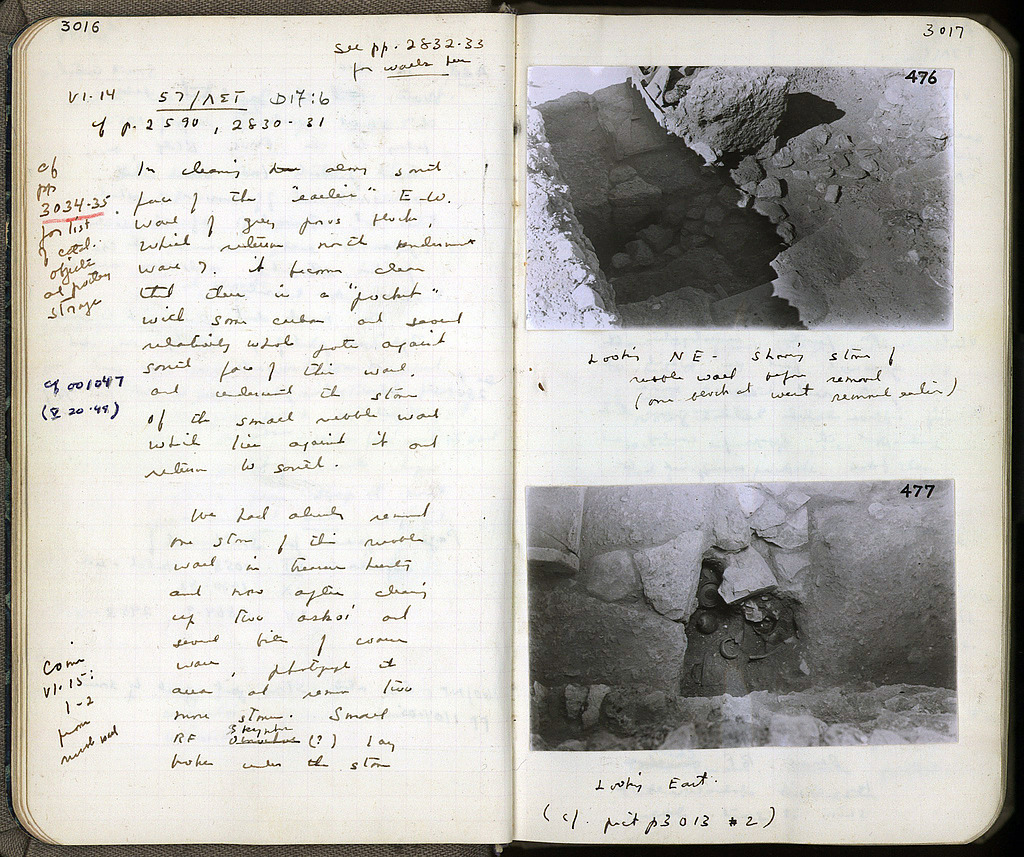 3016
see pp. 2832-33
for walls here
VI.14 57/ΛΣΤ D17:6
cf p. 2590, 2830-31
In cleaning along south
face of the "earlier" E-W.
wall of grey poros blocks,
which returns north
wall 7. it becomes clear
that there is a "pocket"
with some carbon and several
relatively whole pots against
south face of this wall.
and underneath the stones
of the small rubble wall
which lies against it and
returns to south.
We had already removed
one stone of this rubble
wall in
and now after cleaning
up two askoi and
several bits of coarse
ware, photograph the
area, and remove two
more stones. Small
RF skyphos (?) lay
broken under the stones
cf
pp
3034-35.
for list
of catal.
objects
and pottery
storage
cf 001047
(V 20.48)
Coin
VI.15:
1-2
from
3017
476
Looking NE - showing stones of
rubble wall before removal
(one block at west removed earlier)
477
Looking East.
(cf. pict p 3013 #2)